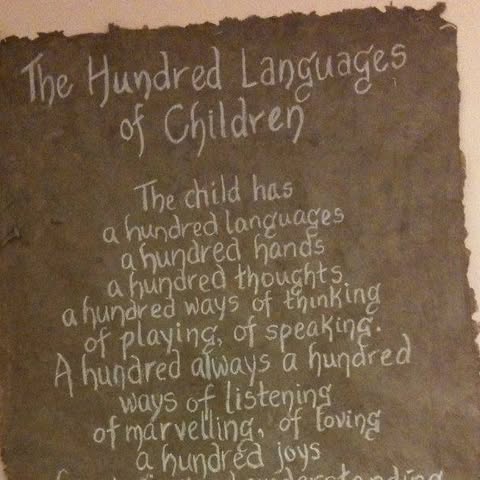 The Hundred Languages
of Children
The child has
a hundred languages
a hundred hands
a hundred thoughts
a hundred ways of thinking
of playing, of speaking.
A hundred always a hundred
ways of listening
of marvelling, of loving
a hundred joys
understanding